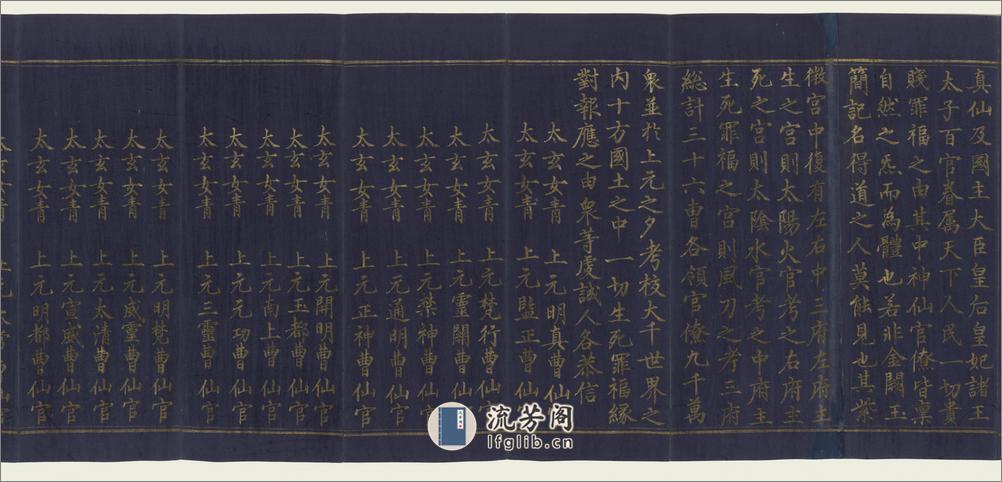 真仙及國主大臣皇后皇妃諸王
太子百官眷属天下人民一切裏
賤罪福之由其中神仙官僚皆禀
自然之炁而為體也若非金闕玉
簡記名得道之人莫能見也其紫
微宫中復有左右中三府左府主
生之宫則太陽火官考之右府主
死之宫則太陰水官考之中府主
生死罪福之宫則風刀之考三府
總計三十六曹各領官僚九千萬
衆並於上元之夕考校大千世界之
内十方國土之中一切生死罪福緣
對報應之由衆等虔誠人各恭信
太玄女青 上元明真曹仙官
太玄女青 上元監正曹仙
太玄女青 上元梵行曹仙
太玄女青 上元靈關曹仙
太玄女青 上元禁神曹仙
太玄女青 上元通明曹仙官
太玄女青 上元正神曹仙官
太玄女青 上元開明曹仙官
太玄女青 上元玉都曹仙官
太玄女青 上元南上曹仙官
太玄女青 上元元功曹仙官
太玄女青 上元三靈曹仙官
太玄女青 上元明梵曹仙官
太玄女青 上元威靈曹仙官
太玄女青 上元太清曹仙官
太玄女青 上元宣威曹仙官
太玄女青 上元明都曹仙官
流芳阁
lfglib.cn